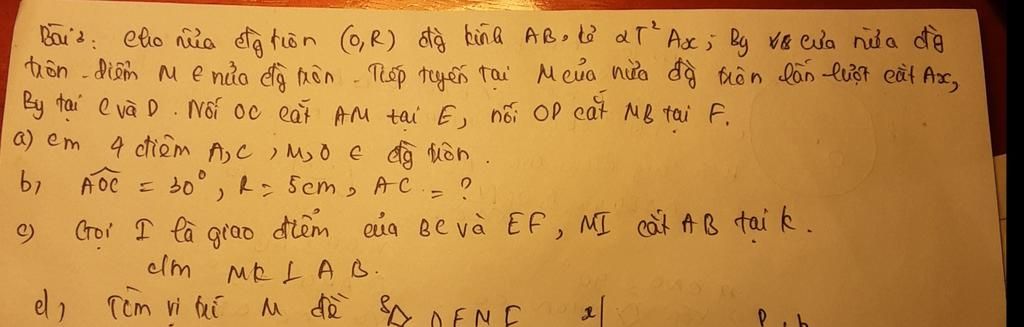 Bài 2: Cho nửa đg tròn (O,R) đg kính AB, kẻ 2T² Ax; By của nửa đg
tròn. điểm M ∈ nửa đg tròn. Tiếp tuyến tại M của nửa đg tròn lần lượt cắt Ax,
By tại C và D. Nối OC cắt AM tại E, nối OD cắt MB tại F.
a) cm 4 điểm A, C, M, O ∈ đg tròn.
b, AOC = 30°, R = 5cm, AC = ?
c) Gọi I là giao điểm của BC và EF, MI cắt AB tại K.
c/m MK ⊥ AB.
d, Tìm vị trí M để